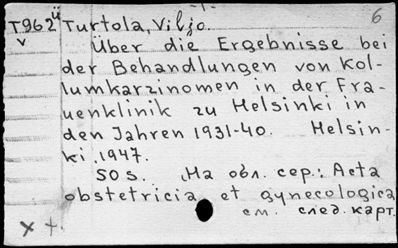 6
T962ü Turtola, Viljo.
Über die Ergebnisse bei
der Behandlungen von Kol-
lumkarzinomen in der Fra-
uenklinik zu Helsinki in
den Jahren 1931-40. Helsin-
ki, 1947.
50 S. На обл. сер.: Acta
obstetricia et gynecologica
см. след. карт.
x +